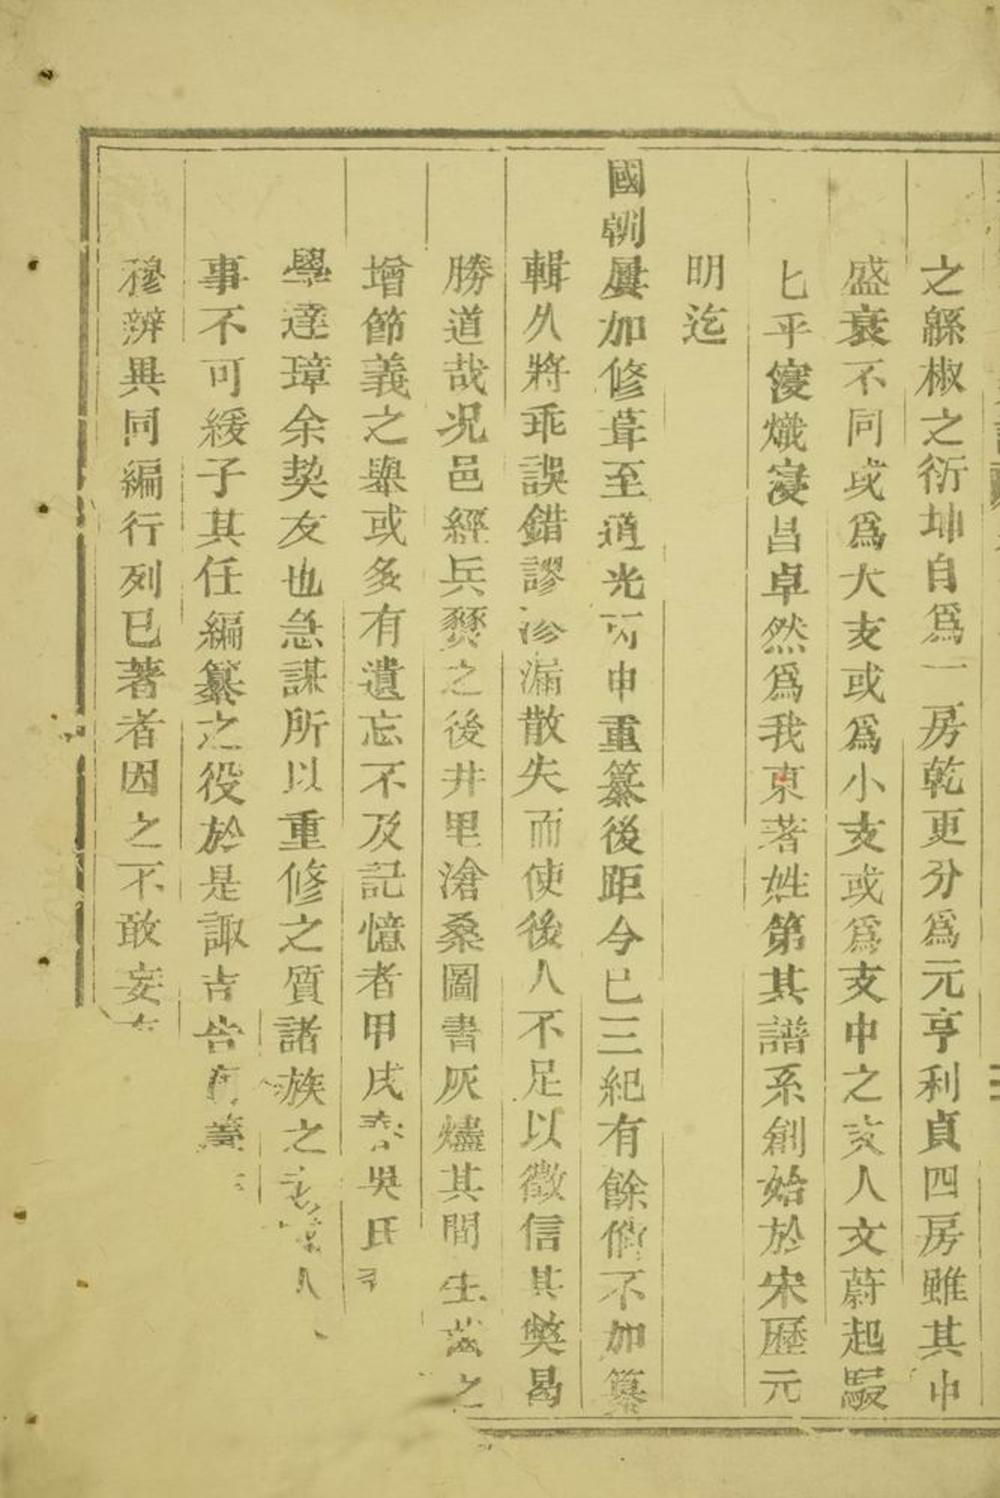 之緜椒之衍坤自爲一房乾更分爲元亨利貞四房雖其中
盛衰不同或爲大支或爲小支或爲支中之支人文蔚起駸
匕乎寖熾寖昌卓然爲我東著姓第其譜系創始於宋歷元
明迄
國朝屢加修葺至道光丙申重纂後距今已三紀有餘倘不加纂
輯久將乖誤錯謬滲漏散失而使後人不足以徵信其獘曷
勝道哉况邑經兵燹之後井里滄桑圖書灰燼其間生齒之
增節義之舉或多有遺忘不及記憶者甲戌春吳氏
學達璋余契友也急謀所以重修之質諸族之人
事不可緩子其任編纂之役於是諏吉告
穆辨異同編行列已著者因之不敢妄